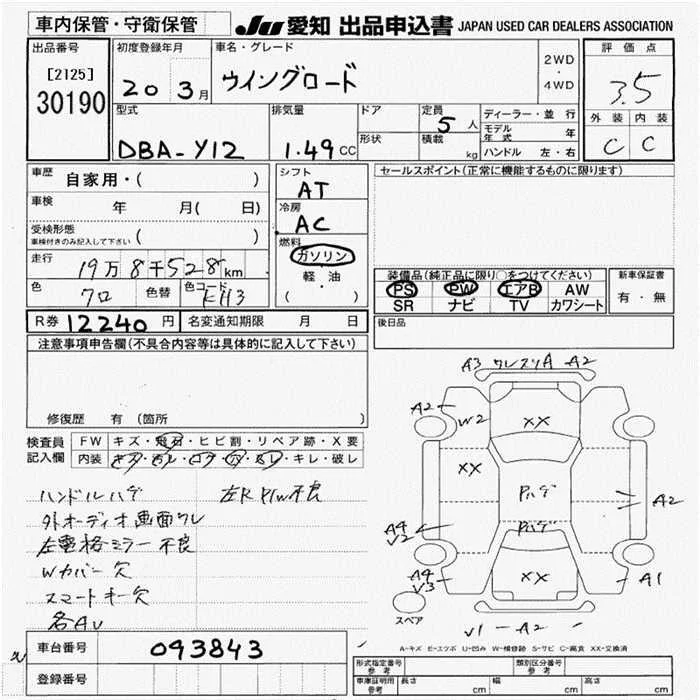 車内保管・守衛保管 JU 愛知 出品申込書 JAPAN USED CAR DEALERS ASSOCIATION
出品番号 初度登録年月 車名・グレード 2WD 評価点
[2125] 20 3月 ウイングロード ・ 3.5
30190 4WD 外装 内装
型式 排気量 ドア 定員 ディーラー・並行 C C
5人 モデル年式 年
DBA-Y12 1.49CC 形状 積載 kg ハンドル 左・右
車歴 自家用・( ) シフト セールスポイント(正常に機能するものに限ります)
AT
車検 年 月( 日) 冷房
AC
受検形態 ( )
車検付きのみ記入して下さい 燃料
走行 19万8千528km ガソリン 装備品(純正品に限り○をつけてください) 新車保証書
軽・油 PS PW エアB AW 有・無
色 クロ 色替 色コード K113 ( ) SR ナビ TV カワシート
R券 12240円 名変通知期限 月 日 後日品
注意事項申告欄(不具合内容等は具体的に記入して下さい)
修復歴 有 (箇所 )
検査員 FW キズ・飛石・ヒビ割・リペア跡・X要
記入欄 内装 キズ・ヨレ・コゲ・穴・スレ・キレ・破レ
ハンドルハゲ 左R P/W不良
外オーディオ画面ワレ
左電格ミラー不良
Wカバー欠
スマートキー欠
各AU
車台番号 093843
登録番号
A3 ワレスリA A2
A2 W2 XX
XX Pハゲ A2
A4 Pハゲ
V2
A4 XX A1
V3
スペア
V1 A2
A-キズ E-エクボ U-凹み W-補修跡 S-サビ C-腐食 XX-交換済
形式指定番号 参考 類別区分番号 参考
車庫証明用 参考 長さ cm 幅 cm 高さ cm